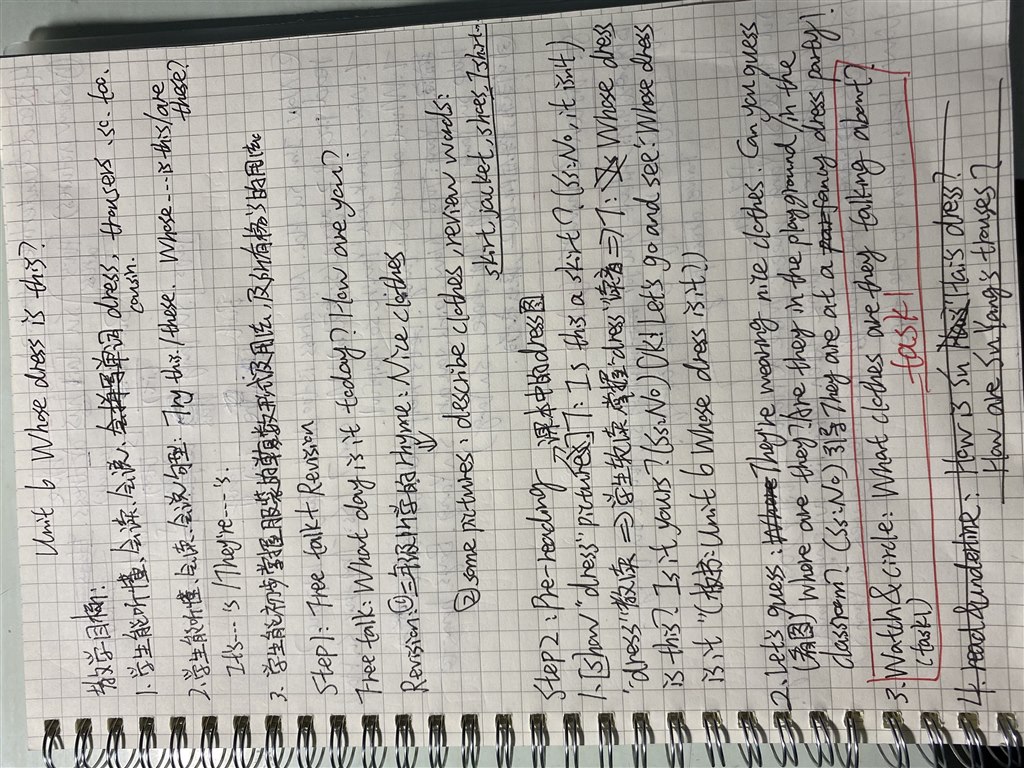 Unit 6 Whose dress is this?
教学目标:
1. 学生能听懂、会读、会说、会拼写单词 dress, trousers, so, too.
cousin.
2. 学生能听懂、会读、会说句型: Try this./these. Whose...is this/are these?
It's...'s /They're...'s.
3. 学生能初步掌握服装的单复数形式及用法, 及所有格's的用法
Step1: Free talk+Revision
Free talk: What day is it today? How are you?
Revision: ①三年级所学的rhyme: Nice clothes
②some pictures: describe clothes, review words:
skirt, jacket, shoes, T-shirt.
Step2: Pre-reading 课本中的dress图
1. [show "dress" pictures] T: Is this a skirt? (Ss: No, it isn't)
"dress"教读 => 学生软读掌握"dress"读音 => T: Whose dress
is this? Is it yours? (Ss: No) OK! Let's go and see: Whose dress
is it? (板书: Unit 6 Whose dress is it?)
2. Let's guess: They're wearing nice clothes. Can you guess
(看图) Where are they? Are they in the playground / in the
classroom? (Ss: No) 引导 They are at a fancy dress party!
3. Watch & Circle: What clothes are they talking about?
(task1) task1
4. read & underline: How is Su Hai this dress?
How are Su Yang's trouses?